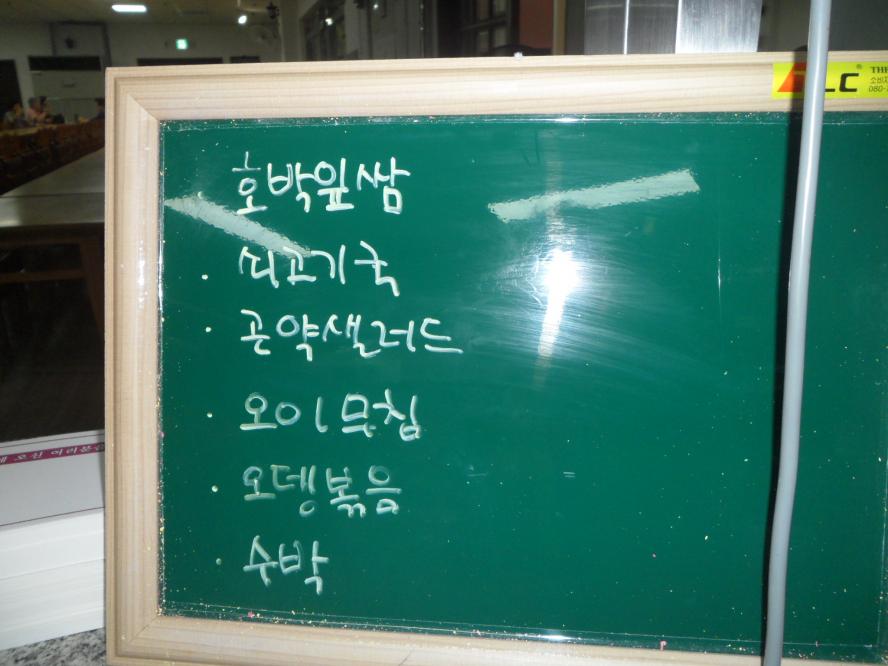 · 호박잎쌈
· 쇠고기국
· 곤약샐러드
· 오이무침
· 오뎅볶음
· 수박
LC